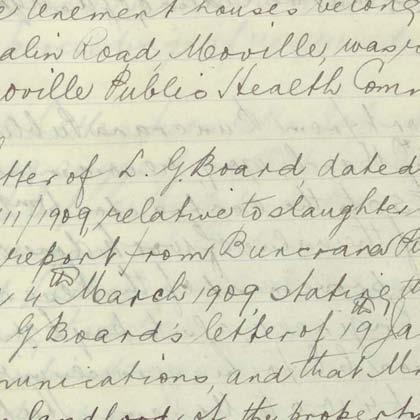 e tenement houses belong
alin Road, Moville, was r
oville Public Health Comm
etter of L. G. Board, dated
11/1909, relative to slaughter
report from Buncrana Pu
4th March 1909, stating th
G. Board's letter of 19th Ja
munications, and that Mr
landlord of the property